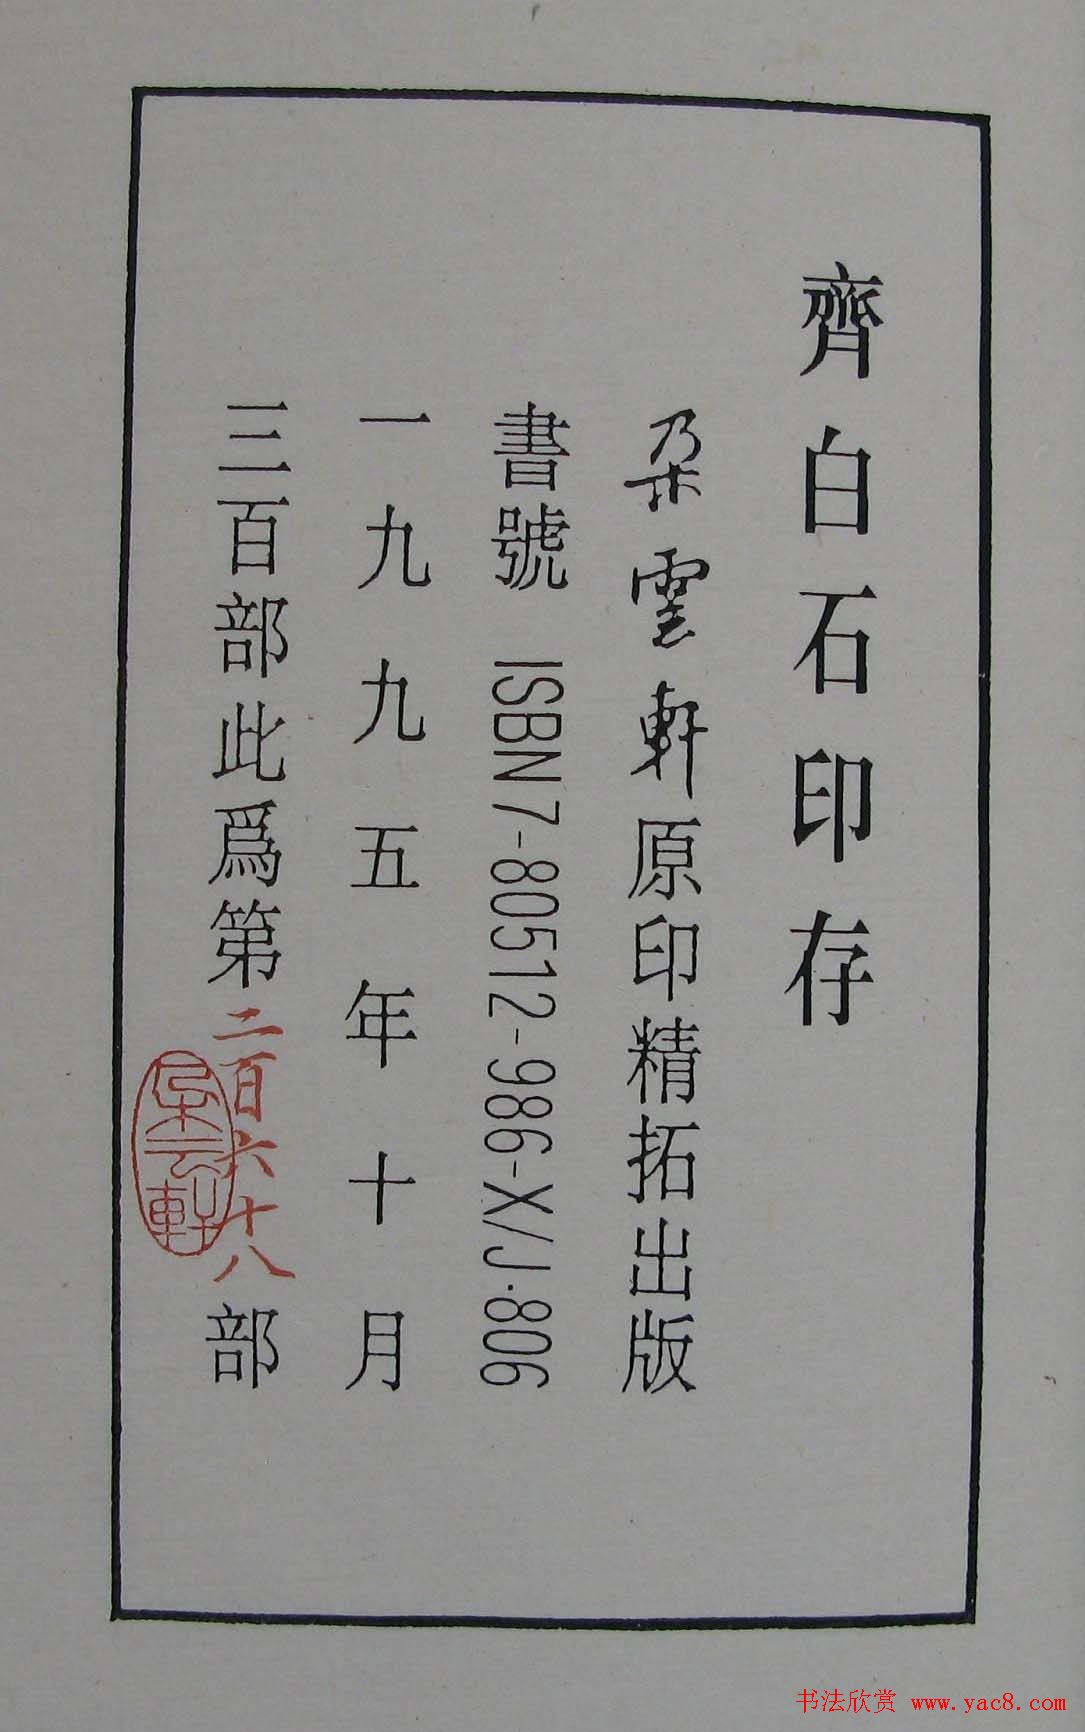 齊白石印存
朵雲軒原印精拓出版
書號 ISBN7-80512-986-X/J·806
一九九五年十月
三百部此爲第二百六十八部
朵云軒
书法欣赏 www.yac8.com